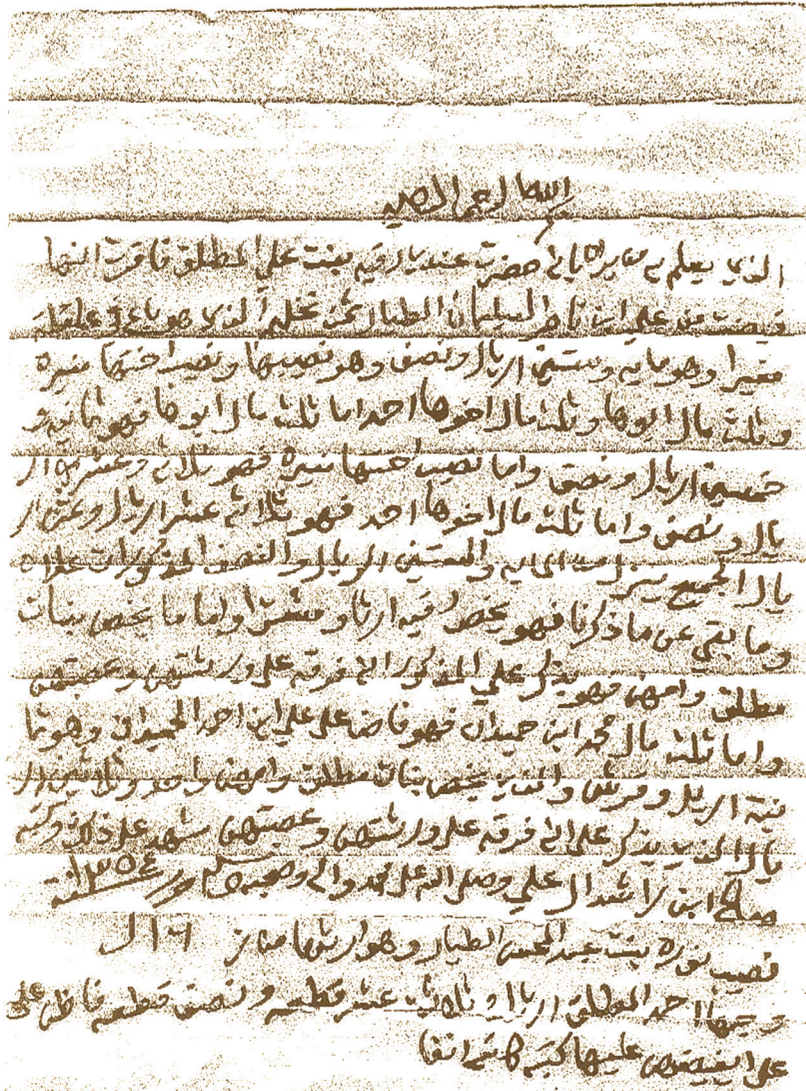 بسم الله الرحمن الرحيم
الذي يعلم به من يراه بانه حضرت عندي رقيه بنت علي المطلق فاقرت انها
قبضت من علي ابن ناصر السليمان الطيار ثمن نخلهم الذي هو بايع على
وهو مايه وستين اربال ونصف وهو نصيبها ونصيب اختها منيره
وثلث مال ابوها وثلث مال اخوها احمد اما ثلث مال ابوها فهو ثمانيه و
خمسين اربال ونصف واما نصيب اختها منيره فهو ثلاث وعشرين ار
يال ونصف واما ثلث مال اخوها احمد فهو ثلاثة عشر اربال وعشر ار
يال الجميع من المايه والستين الريال والنصف المذكورات علاه
وما بقي عن ما ذكرنا فهو يخص رقيه اربا واما ما يخص بنات
مطلق وامهن فهو يذكر علي المذكور انه فرقه على ورثتهن وعصبتهن
واما ثلث مال محمد ابن حميدان فهو على علي ابن احمد الحميدان وهو ثما
نية اريل وقرش والذي يخص بنات مطلق وامهن واحد وثلاثين ار
يال الذي يذكر علي انه فرقه على ورثتهن وعصبتهن شهد على ذلك وكتبه
صالح ابن راشد ال علي وصلى الله على محمد واله وصحبه وسلم ١٣٥٤
نصيب نوره بنت عبد المحسن الطيار وهو ارثها من ١٦ ال
زوجها احمد المطلق اربال ثلاث عشر قطعه ونصف قطعه على
علي عليها كتبه